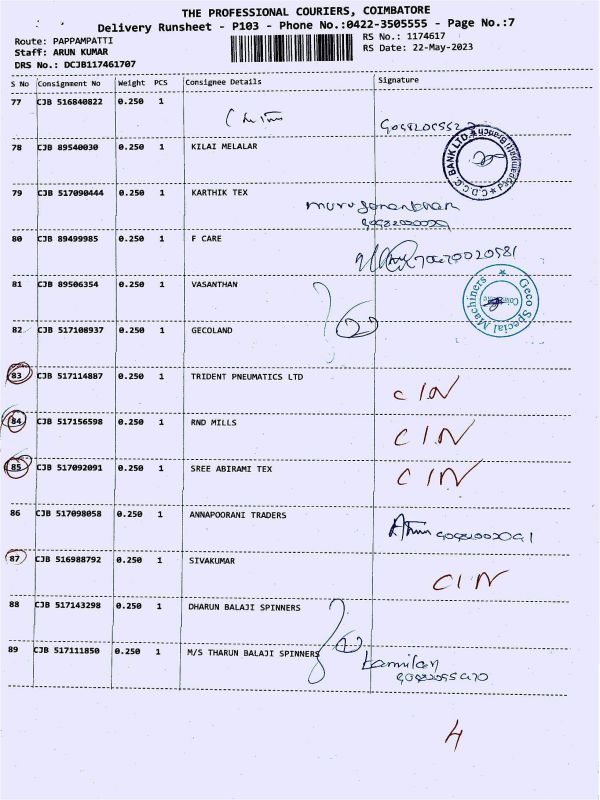 THE PROFESSIONAL COURIERS, COIMBATORE
Delivery Runsheet - P103 - Phone No.:0422-3505555 - Page No.:7
Route: PAPPAMPATTI RS No.: 1174617
Staff: ARUN KUMAR RS Date: 22-May-2023
DRS No.: DCJB117461707
S No Consignment No Weight PCS Consignee Details Signature
77 CJB 516840822 0.250 1
78 CJB 89540030 0.250 1 KILAI MELALAR
79 CJB 517090444 0.250 1 KARTHIK TEX
80 CJB 89499985 0.250 1 F CARE
81 CJB 89506354 0.250 1 VASANTHAN
Geco Special Machiners
82 CJB 517108937 0.250 1 GECOLAND
83 CJB 517114887 0.250 1 TRIDENT PNEUMATICS LTD CIN
84 CJB 517156598 0.250 1 RND MILLS CIN
85 CJB 517092091 0.250 1 SREE ABIRAMI TEX CIN
86 CJB 517098058 0.250 1 ANNAPOORANI TRADERS
87 CJB 516988792 0.250 1 SIVAKUMAR CIN
88 CJB 517143298 0.250 1 DHARUN BALAJI SPINNERS
89 CJB 517111850 0.250 1 M/S THARUN BALAJI SPINNERS
4